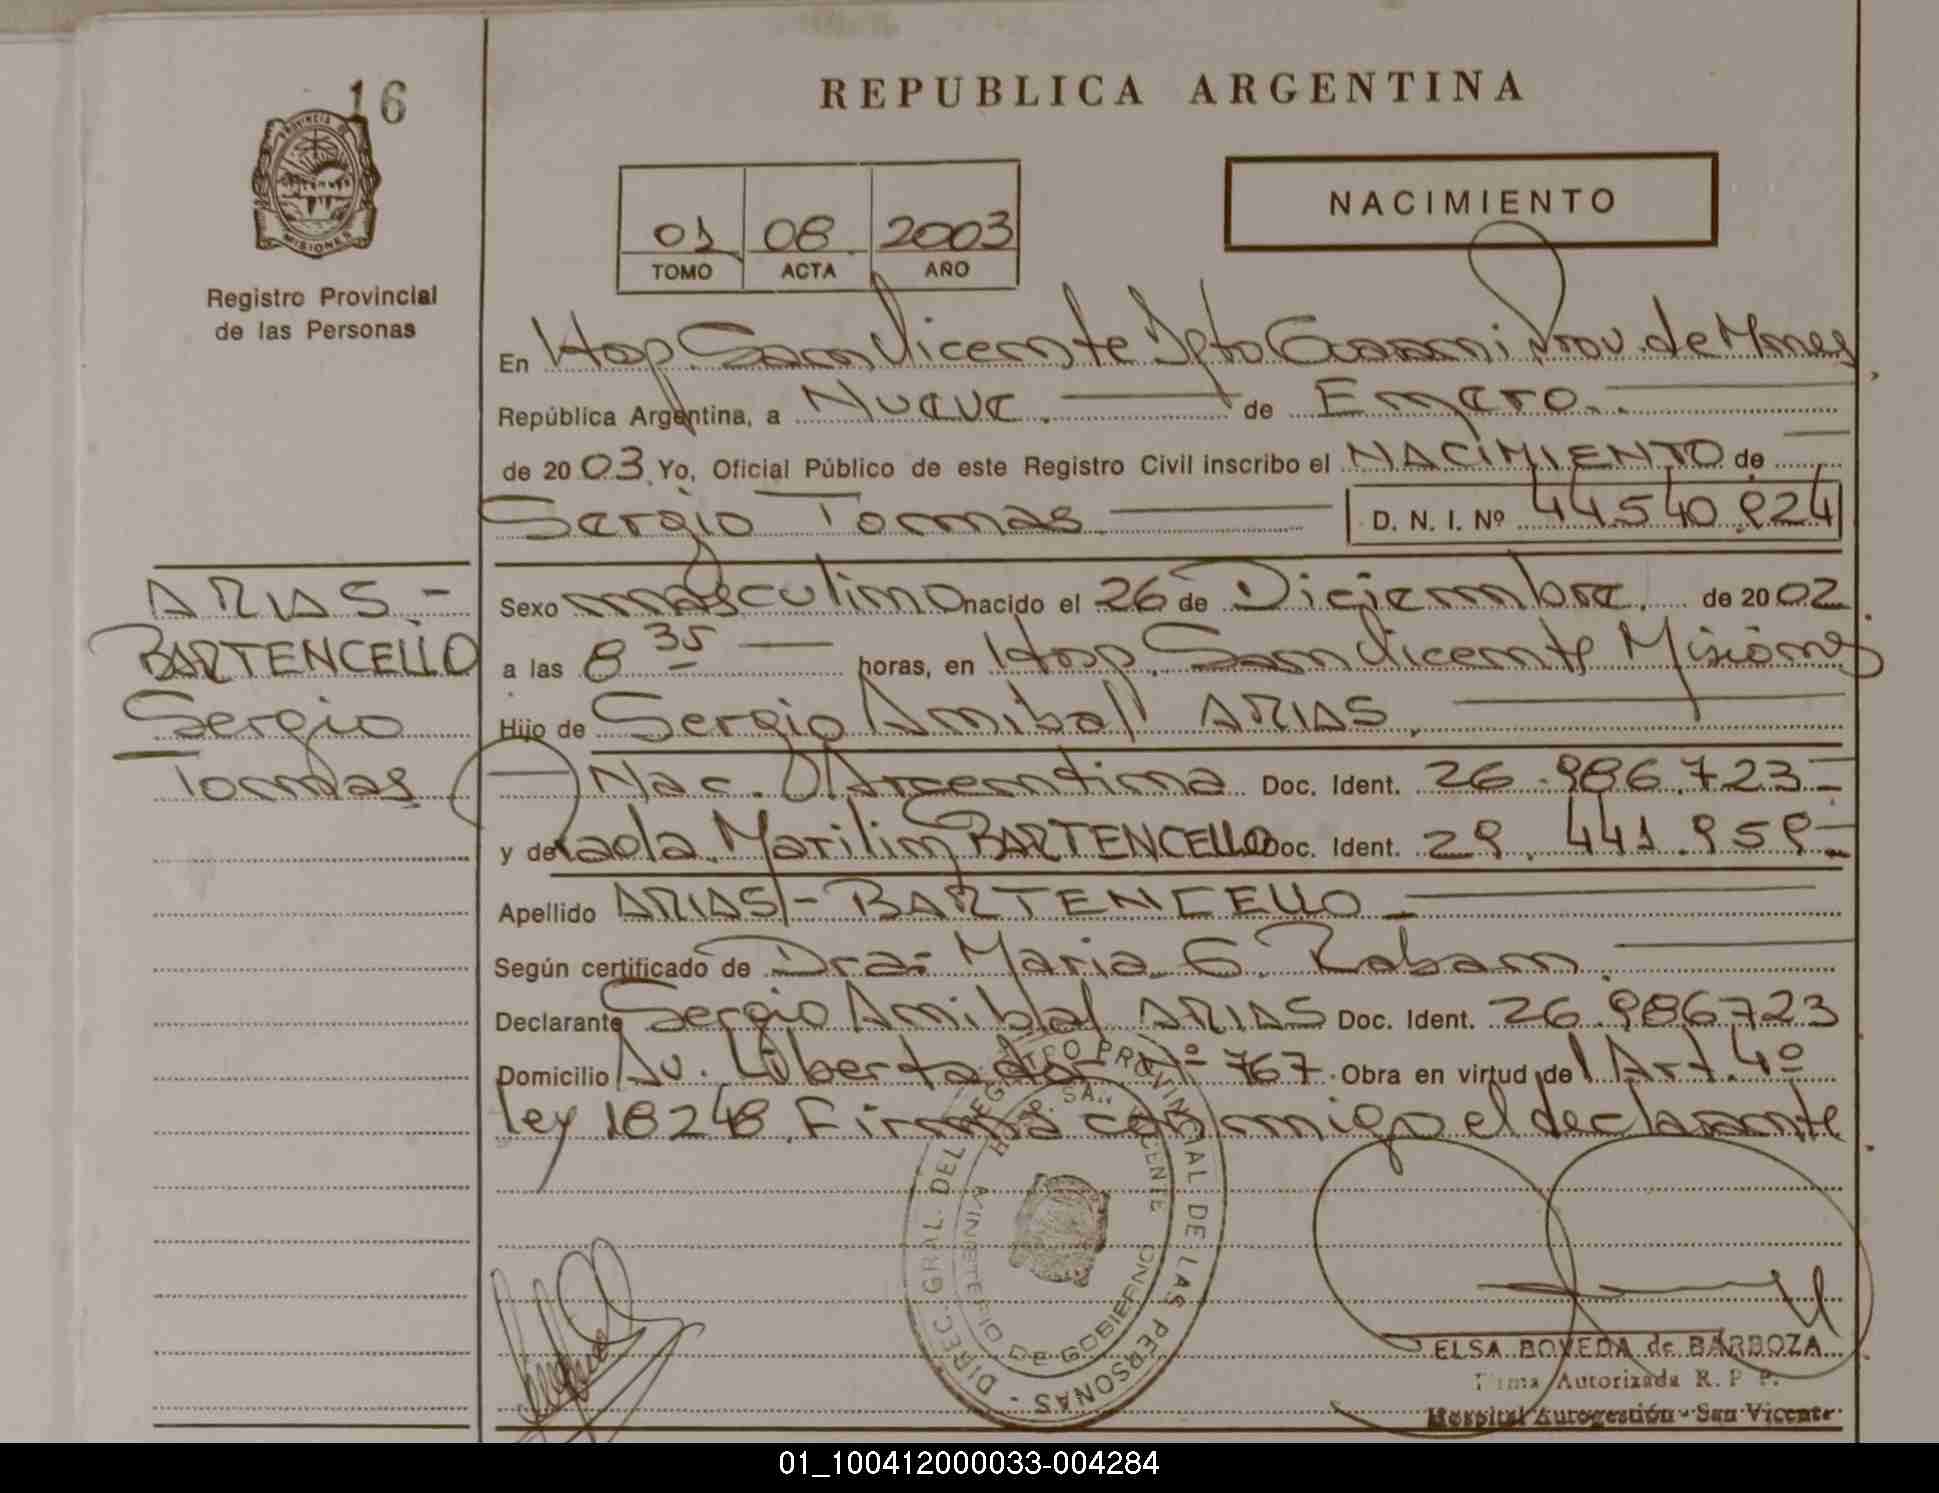 16
PROVINCIA DE
MISIONES
Registro Provincial
de las Personas
REPUBLICA ARGENTINA
01 08 2003
TOMO ACTA AÑO
NACIMIENTO
En Hosp San Vicente Dpto Guarani Prov. de Mnes
República Argentina, a Nueve de Enero
de 2003 Yo, Oficial Público de este Registro Civil inscribo el NACIMIENTO de
Sergio Tomas D. N. I. Nº 44.540.924
ARIAS -
BARTENCELLO
Sergio
Tomas
Sexo masculino nacido el 26 de Diciembre de 2002
a las 8 35 horas, en Hosp. San Vicente Misiones
Hijo de Sergio Anibal ARIAS
Nac. Argentina Doc. Ident. 26.986.723-
y de Paola Marilin BARTENCELLO Doc. Ident. 29.441.959-
Apellido ARIAS - BARTENCELLO -
Según certificado de Dra. Maria G. Raban
Declarante Sergio Anibal ARIAS Doc. Ident. 26.986723
Domicilio Av. Libertador Nº 767. Obra en virtud del Art. 4º
ley 18248. Firma conmigo el declarante
DIREC. GRAL. DEL REGISTRO PROVINCIAL DE LAS PERSONAS -
HOSP. SAN VICENTE
MINISTERIO DE GOBIERNO
ELSA BOVEDA de BARBOZA
Firma Autorizada R. P. P.
Hospital Autogestión - San Vicente
01_100412000033-004284